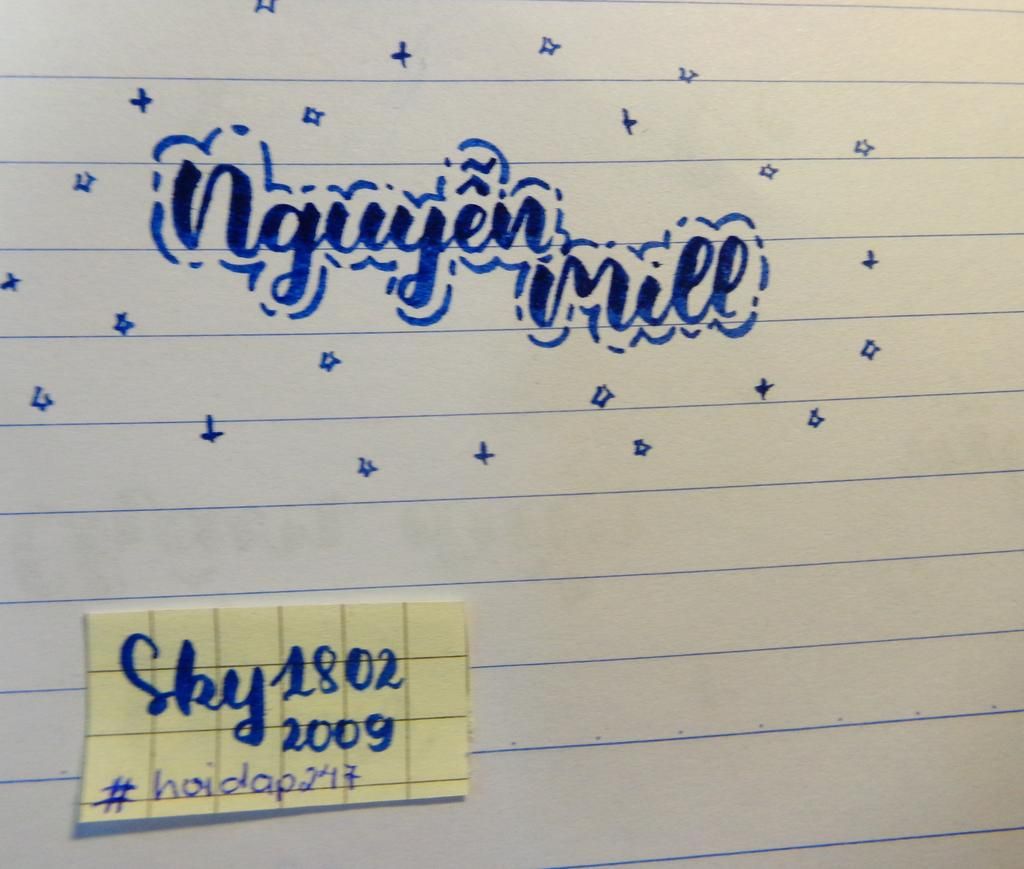 Nguyễn
mill
Sky 1802
2009
#hoidap247